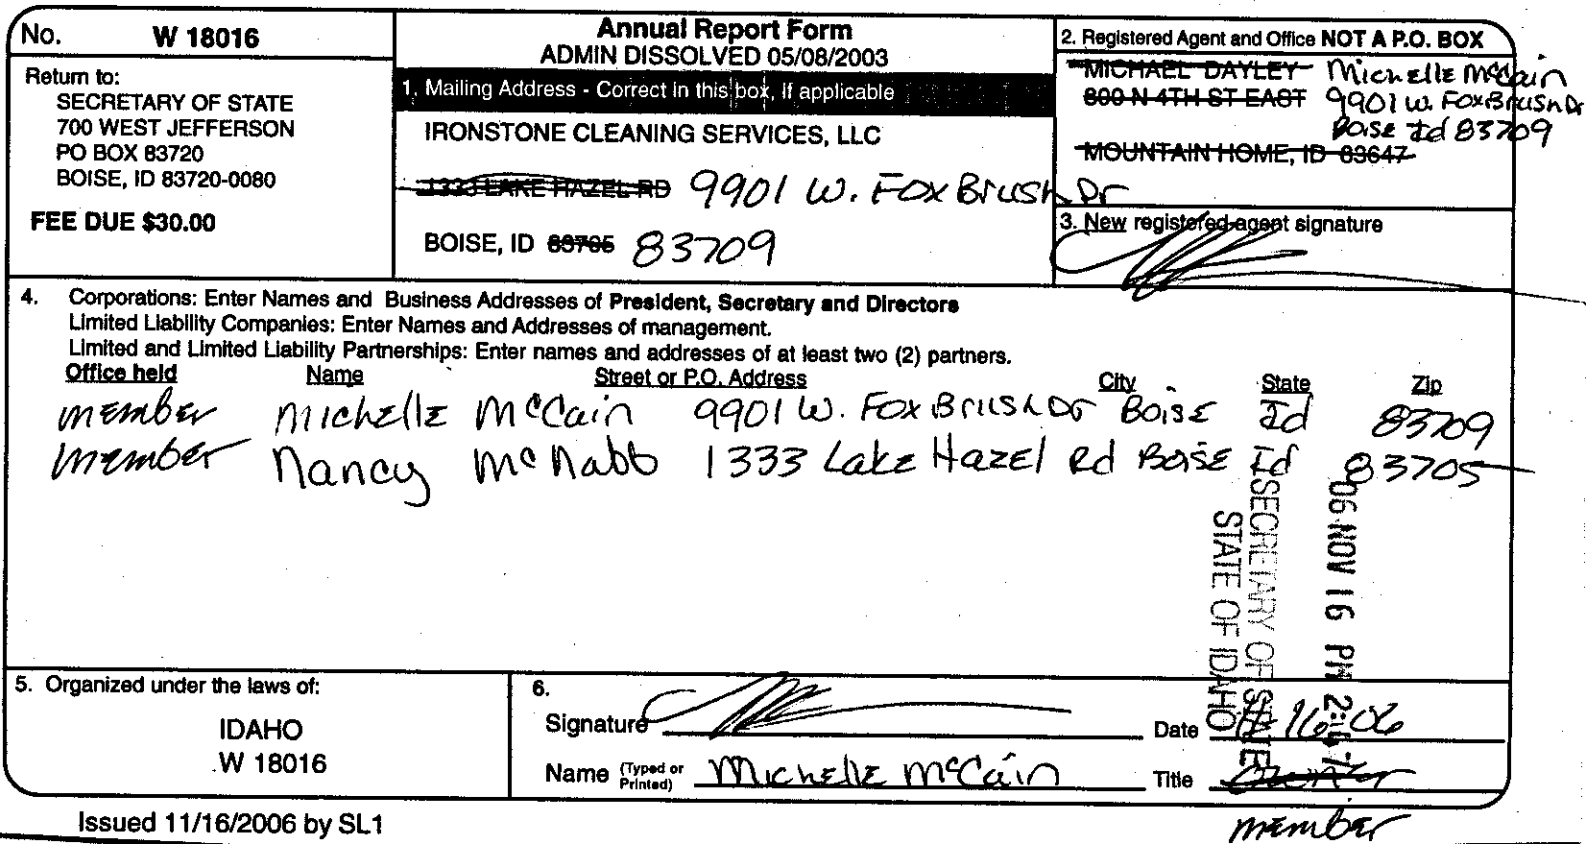 No. W 18016
Return to:
SECRETARY OF STATE
700 WEST JEFFERSON
PO BOX 83720
BOISE, ID 83720-0080
FEE DUE $30.00
Annual Report Form
ADMIN DISSOLVED 05/08/2003
1. Mailing Address - Correct in this box, if applicable
IRONSTONE CLEANING SERVICES, LLC
1333 LAKE HAZEL RD 9901 W. Fox Brush Dr
BOISE, ID 83705 83709
2. Registered Agent and Office NOT A P.O. BOX
MICHAEL DAYLEY Michelle McCain
800 N 4TH ST EAST 9901 W. Fox Brush Dr
Boise Id 83709
MOUNTAIN HOME, ID 83647
3. New registered agent signature
4. Corporations: Enter Names and Business Addresses of President, Secretary and Directors
Limited Liability Companies: Enter Names and Addresses of management.
Limited and Limited Liability Partnerships: Enter names and addresses of at least two (2) partners.
Office held Name Street or P.O. Address City State Zip
member Michelle McCain 9901 W. Fox Brush Dr Boise Id 83709
member Nancy McNabb 1333 Lake Hazel Rd Boise Id 83705
06 NOV 16 PM 2:
SECRETARY OF STATE
STATE OF IDAHO
5. Organized under the laws of:
IDAHO
W 18016
6.
Signature Date 11-16-06
Name (Typed or Printed) Michelle McCain Title
member
Issued 11/16/2006 by SL1